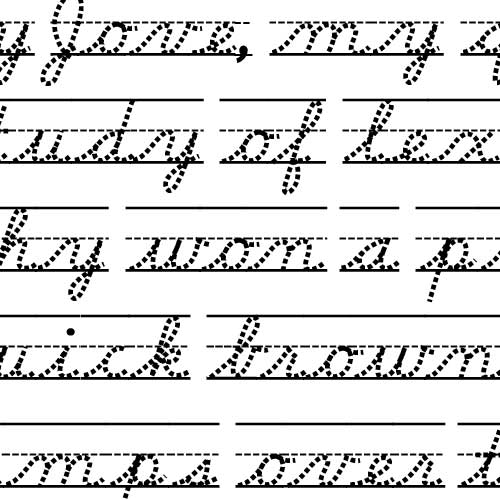 y Jove, my q
tudy of lex
hy won a p
uick brown
mps over t